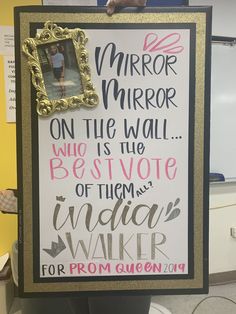 MIRROR
MIRROR
ON THE WALL...
WHO IS THE
BEST VOTE
OF THEM ALL?
india
WALKER
FOR PROM QUEEN 2019